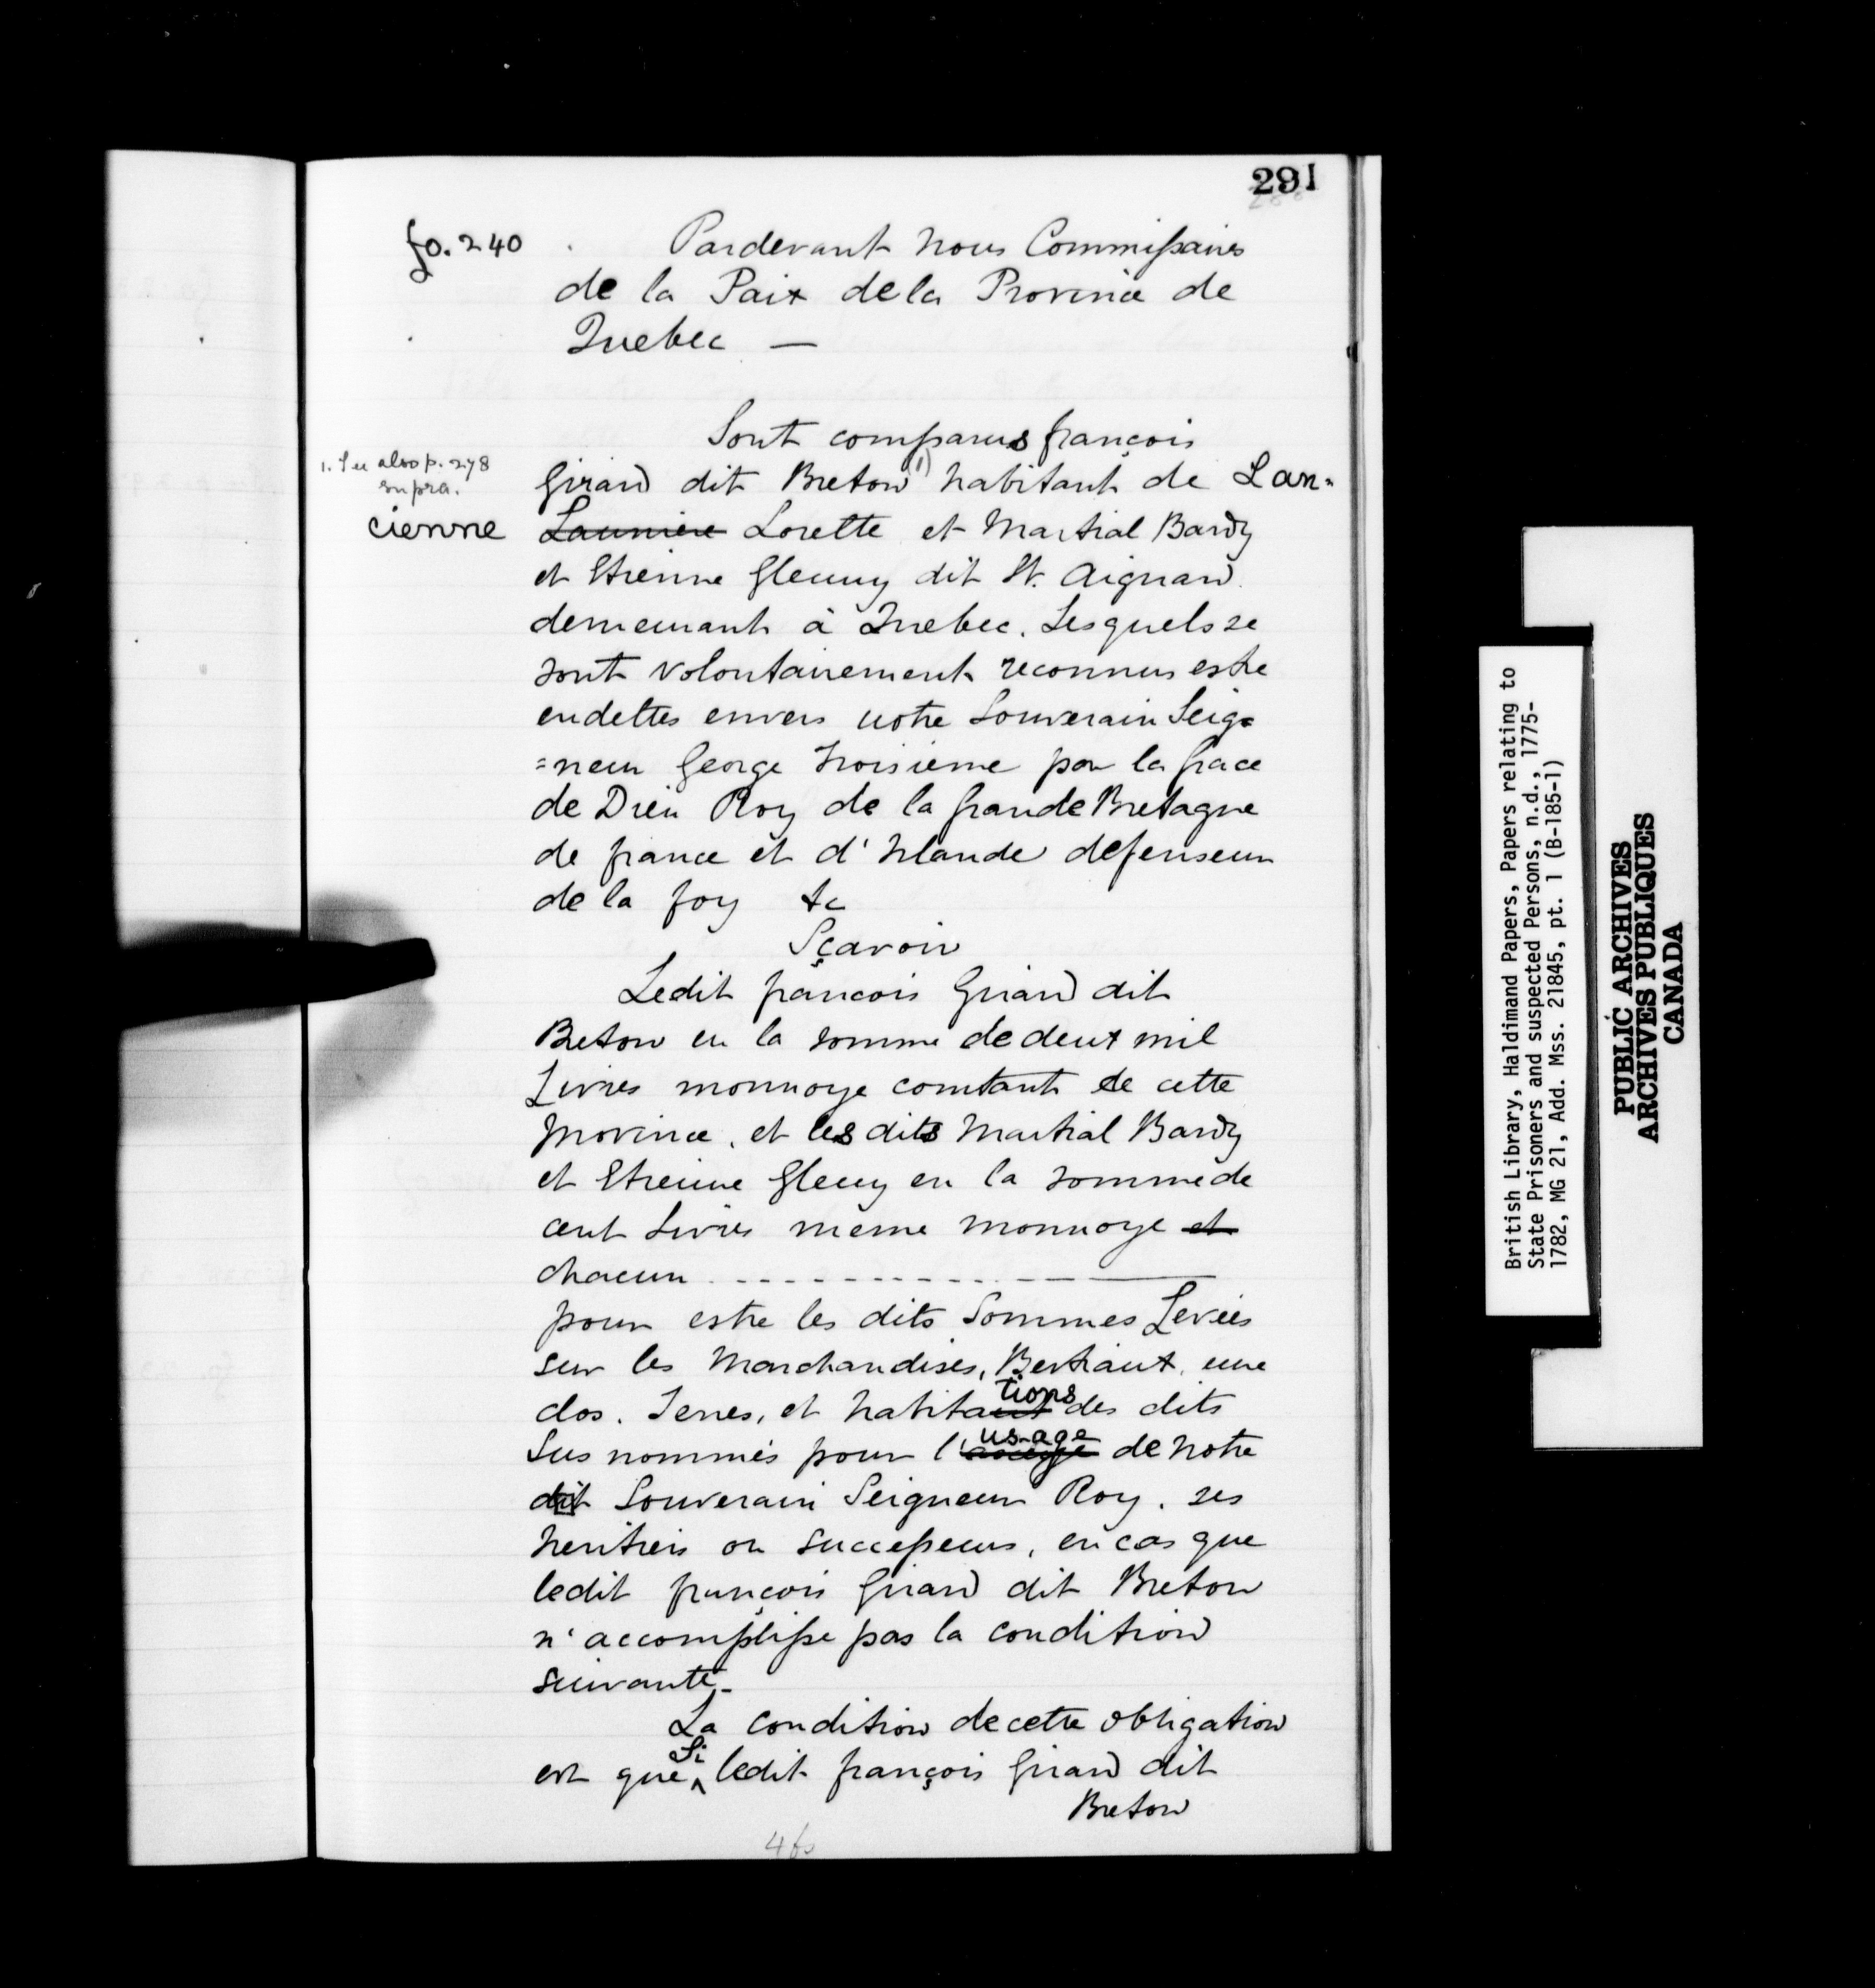 291
fo. 240
Pardevant nous Commissaires
de la Paix de la Province de
Quebec —
Sont comparus françois
1. See also p. 278
supra.
Girard dit Breton (1) habitant de Lan-
cienne
Launiere Lorette et Martial Bardy
et Etienne Gleumy dit St. Aignard
demeurant à Quebec. Lesquels se
sont volontairement reconnus estre
endettes envers notre Souverain Seig=
=neur George troisieme par la Grace
de Dieu Roy de la Grande Bretagne
de france et d'Irlande defenseur
de la foy &c
Sçavoir
Ledit francois Girard dit
Breton en la somme de deux mil
Livres monnoye comtant de cette
Province, et les dits Martial Bardy
et Etienne Gleuy en la somme de
cent Livres meme monnoye et
chacun
pour estre les dits Sommes Levées
sur les Marchandises, Bestiaux, enn
clos. Terres, et habitations des dits
Sus nommés pour l'usage de notre
dit Souverain Seigneur Roy. ses
heritiers ou successeurs, en cas que
ledit françois Girard dit Breton
n'accomplisse pas la condition
suivante_
La condition de cette obligation
est que Si ledit françois Girard dit
Breton
British Library, Haldimand Papers, Papers relating to
State Prisoners and suspected Persons, n.d., 1775-
1782, MG 21, Add. Mss. 21845, pt. 1 (B-185-1)
PUBLIC ARCHIVES
ARCHIVES PUBLIQUES
CANADA